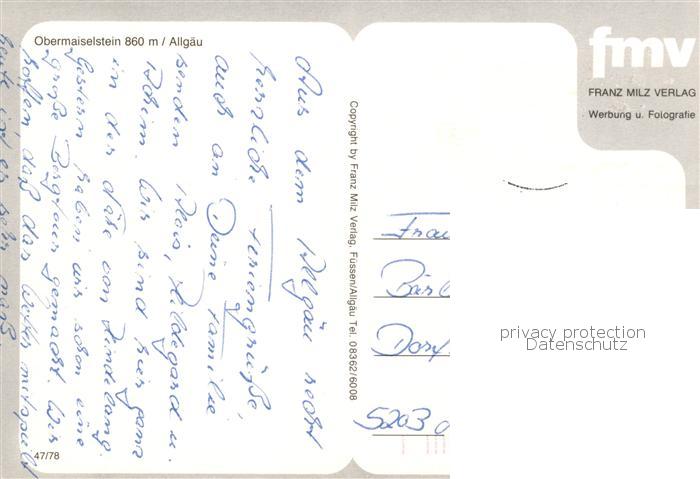 Obermaiselstein 860 m / Allgäu
Aus dem Allgäu recht
herzliche Feriengrüße,
auch an Deine Familie
senden Alois, Hildegard u.
Wir sind hier ganz
in der Nähe von
Gestern haben wir schon eine
große Bergtour gemacht. Wir
hoffen daß das Wetter mitspielt
heute ist es sehr
47/78
Copyright by Franz Milz Verlag, Füssen/Allgäu Tel. 08362/6008
fmv
FRANZ MILZ VERLAG
Werbung u. Fotografie
Frau
Bärb
Dorf
5203
privacy protection
Datenschutz